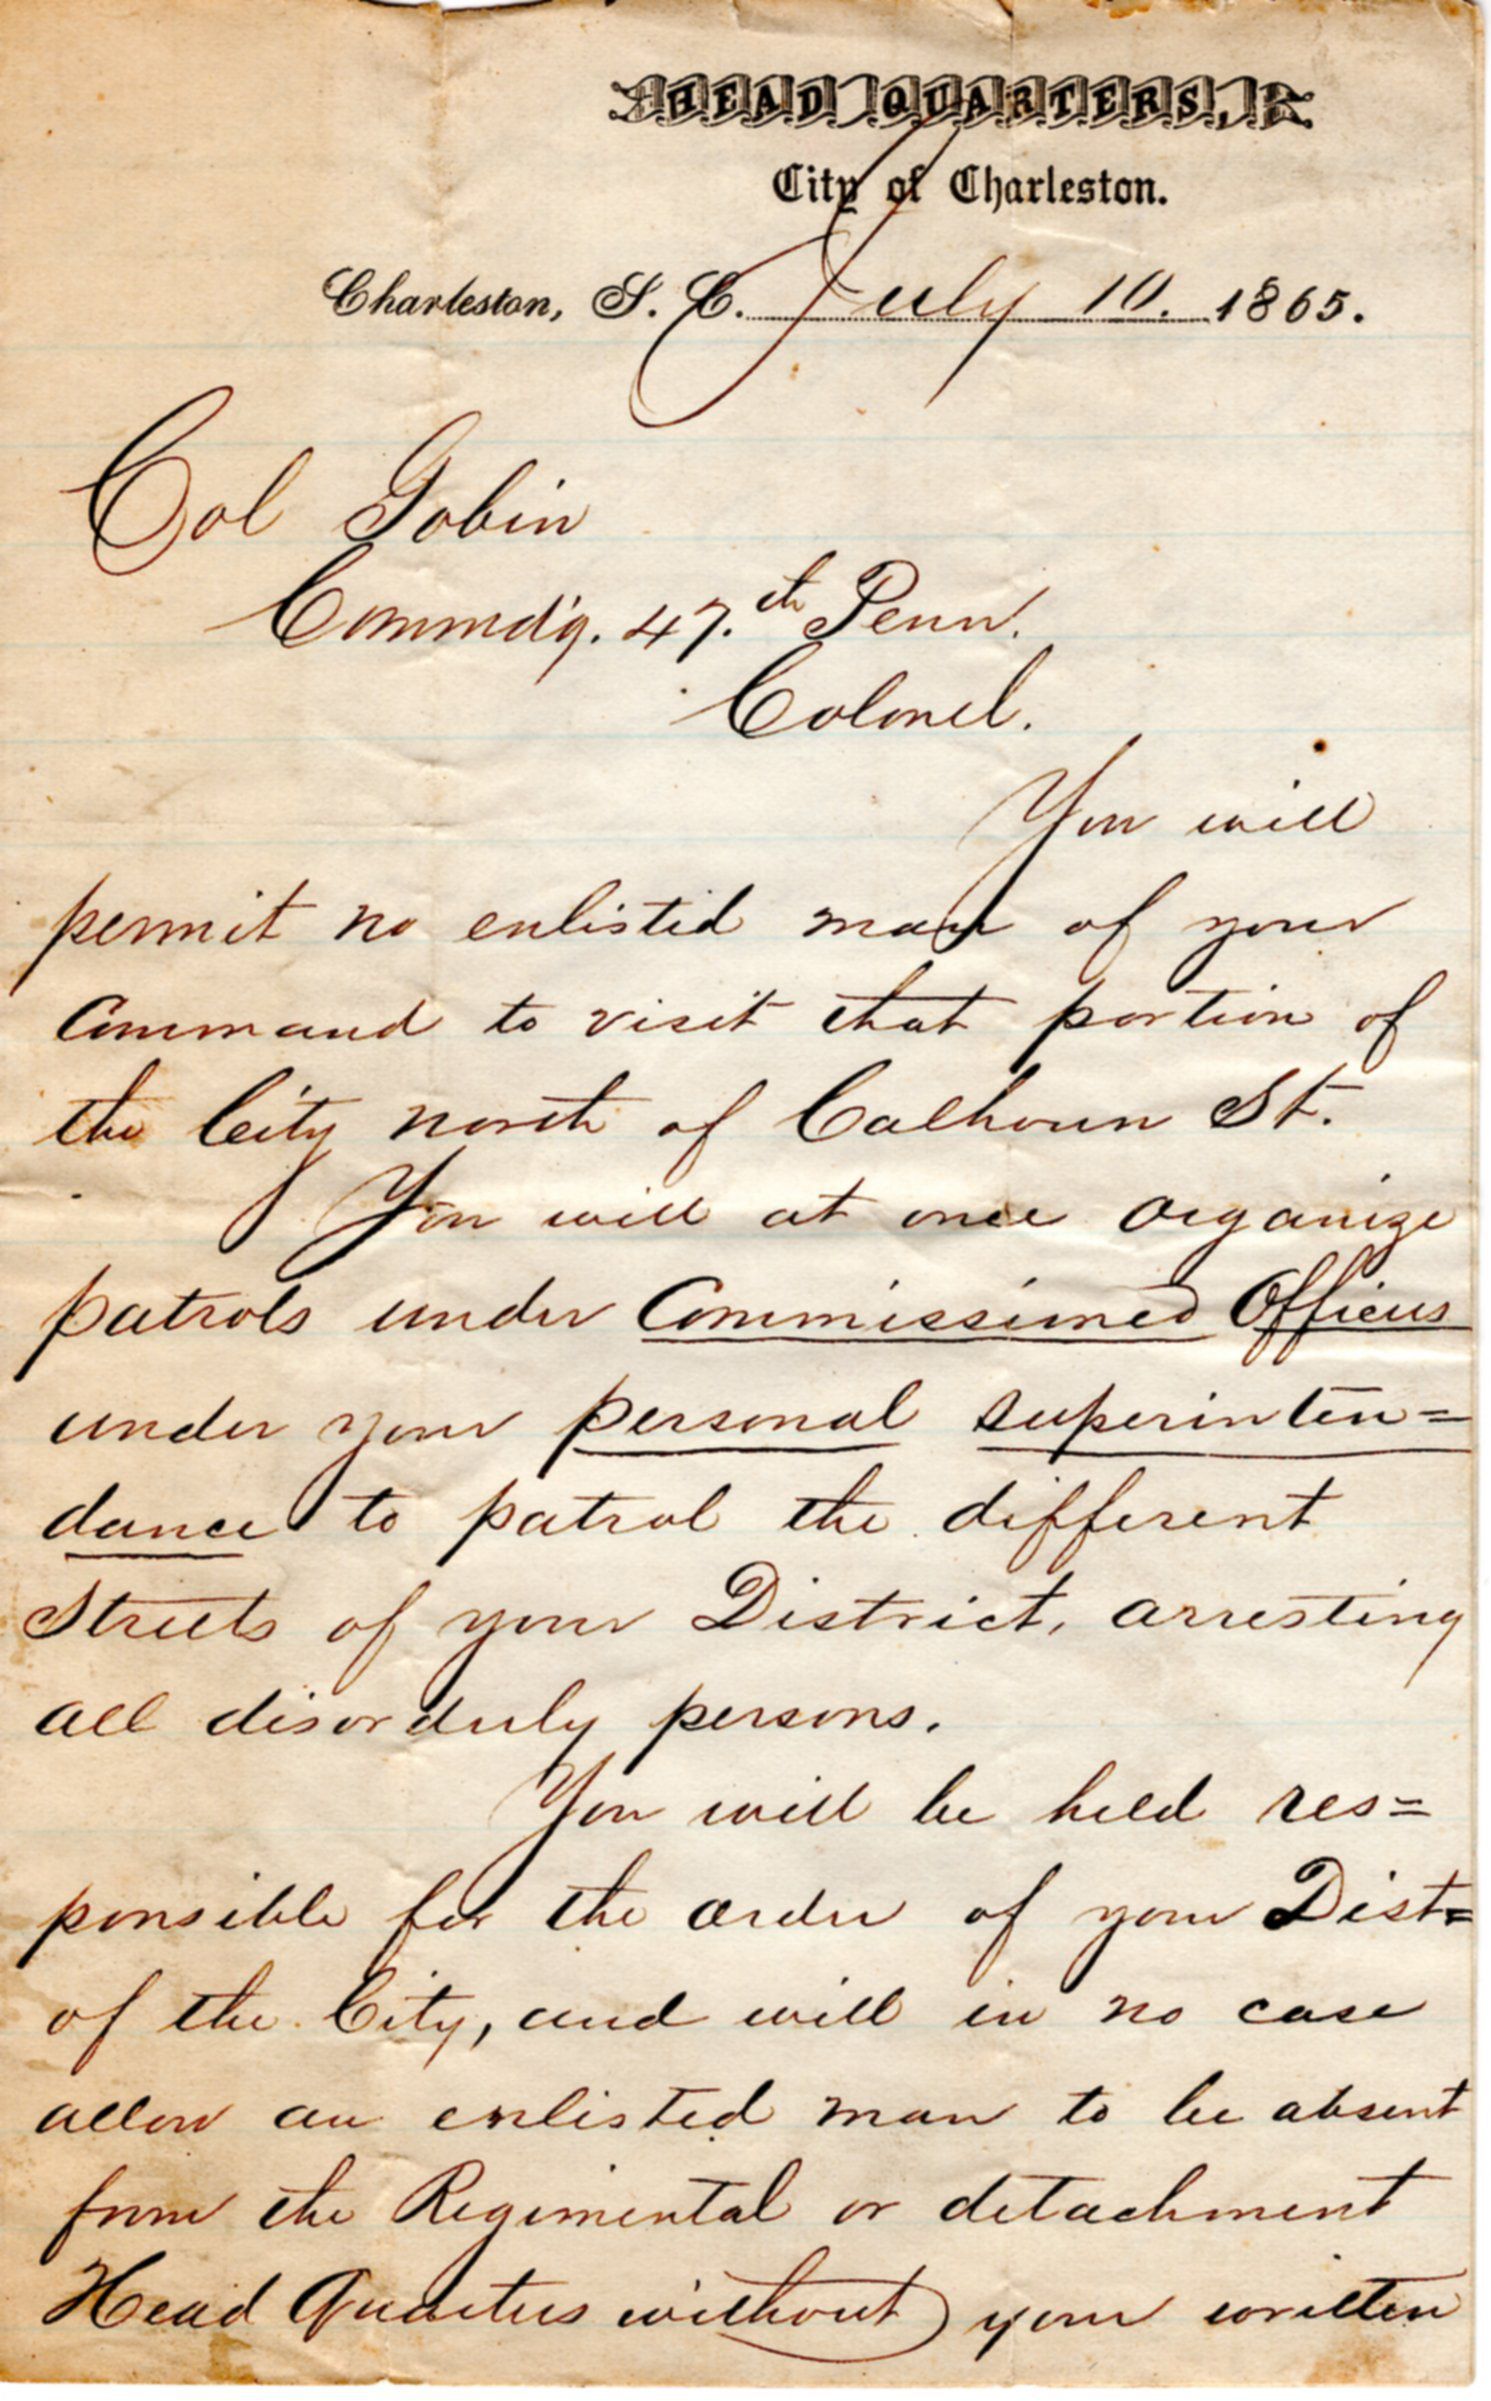 HEAD QUARTERS,
City of Charleston.
Charleston, S. C. July 10. 1865.
Col Gobin
Commd'g. 47.th Penn.
Colonel.
You will
permit no enlisted man of your
Command to visit that portion of
the City north of Calhoun St.
You will at once organize
patrols under Commissioned Officers
under your personal superinten=
dance to patrol the different
Streets of your District, arresting
all disorderly persons.
You will be held res=
ponsible for the order of your Dist=
of the City, and will in no case
allow an enlisted man to be absent
from the Regimental or detachment
Head Quarters without your written